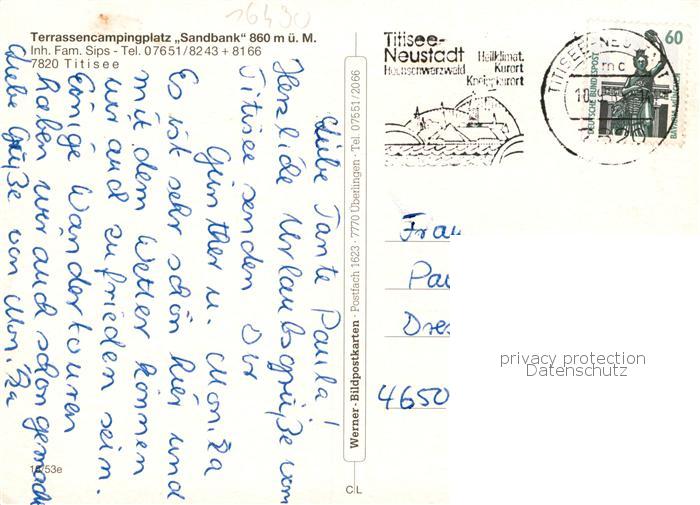 16430
Terrassencampingplatz „Sandbank" 860 m ü. M.
Inh. Fam. Sips - Tel. 07651/8243 + 8166
7820 Titisee
Liebe Tante Paula!
Herzliche Urlaubsgrüße vom
Titisee senden Dir
Günther u. Monika
Es ist sehr schön hier und
mit dem Wetter können
wir auch zufrieden sein.
Einige Wandertouren
haben wir auch schon gemacht
Liebe Grüße von Monika
16/53e
Werner-Bildpostkarten · Postfach 1623 · 7770 Überlingen · Tel. 07551/2066
C L
Titisee-
Neustadt
Hochschwarzwald
Heilklimat.
Kurort
Kneippkurort
TITISEE-NEUSTADT
mc
7820
60
DEUTSCHE BUNDESPOST
BAVARIA MÜNCHEN
Frau
Pau
Dres
4650
privacy protection
Datenschutz